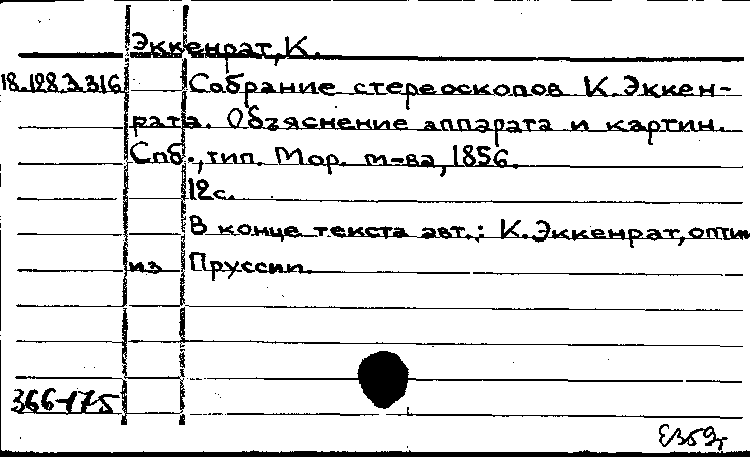 Эккенрат, К.
18.128.3.316 Собрание стереоскопов К. Эккен-
рата. Объяснение аппарата и картин.
Спб., тип. Мор. т-ва, 1856.
12с.
В конце текста авт.: К. Эккенрат, опти
из Пруссии.
366-175